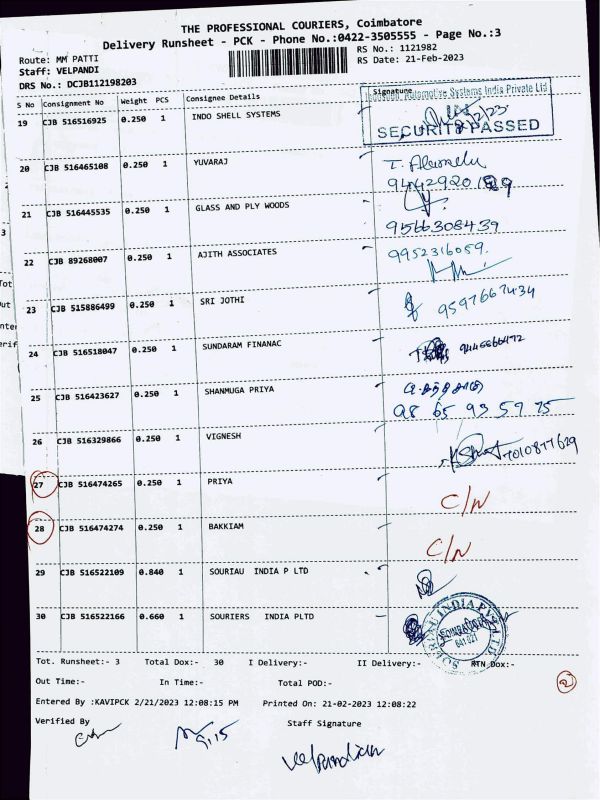 THE PROFESSIONAL COURIERS, Coimbatore
Delivery Runsheet - PCK - Phone No.:0422-3505555 - Page No.:3
Route: MM PATTI
RS No.: 1121982
Staff: VELPANDI
RS Date: 21-Feb-2023
DRS No.: DCJB112198203
S No Consignment No Weight PCS Consignee Details Signature
Automotive Systems India Private Ltd
19 CJB 516516925 0.250 1 INDO SHELL SYSTEMS
SECURITY PASSED
20 CJB 516465108 0.250 1 YUVARAJ
21 CJB 516445535 0.250 1 GLASS AND PLY WOODS
9566308439
22 CJB 89268007 0.250 1 AJITH ASSOCIATES 9952316059.
23 CJB 515886499 0.250 1 SRI JOTHI 9597667434
24 CJB 516518047 0.250 1 SUNDARAM FINANAC
25 CJB 516423627 0.250 1 SHANMUGA PRIYA
98 65 93 59 75
26 CJB 516329866 0.250 1 VIGNESH 7010877629
27 CJB 516474265 0.250 1 PRIYA C/N
28 CJB 516474274 0.250 1 BAKKIAM C/N
29 CJB 516522109 0.840 1 SOURIAU INDIA P LTD
30 CJB 516522166 0.660 1 SOURIERS INDIA PLTD
SOURIAU INDIA PVT LTD
COIMBATORE
641-021
Tot. Runsheet:- 3 Total Dox:- 30 I Delivery:- II Delivery:- RTN Dox:-
Out Time:- In Time:- Total POD:- 2
Entered By :KAVIPCK 2/21/2023 12:08:15 PM Printed On: 21-02-2023 12:08:22
Verified By Staff Signature
9.15
Velpandian